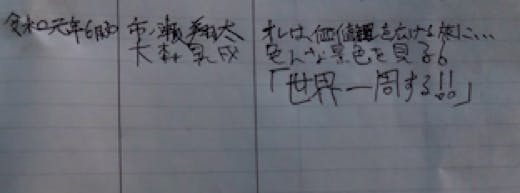 令和元年6月30
市ノ瀬翔太
大森
オレは、価値観を広げる為に…
色んな景色を見る!
「世界一周する!!」